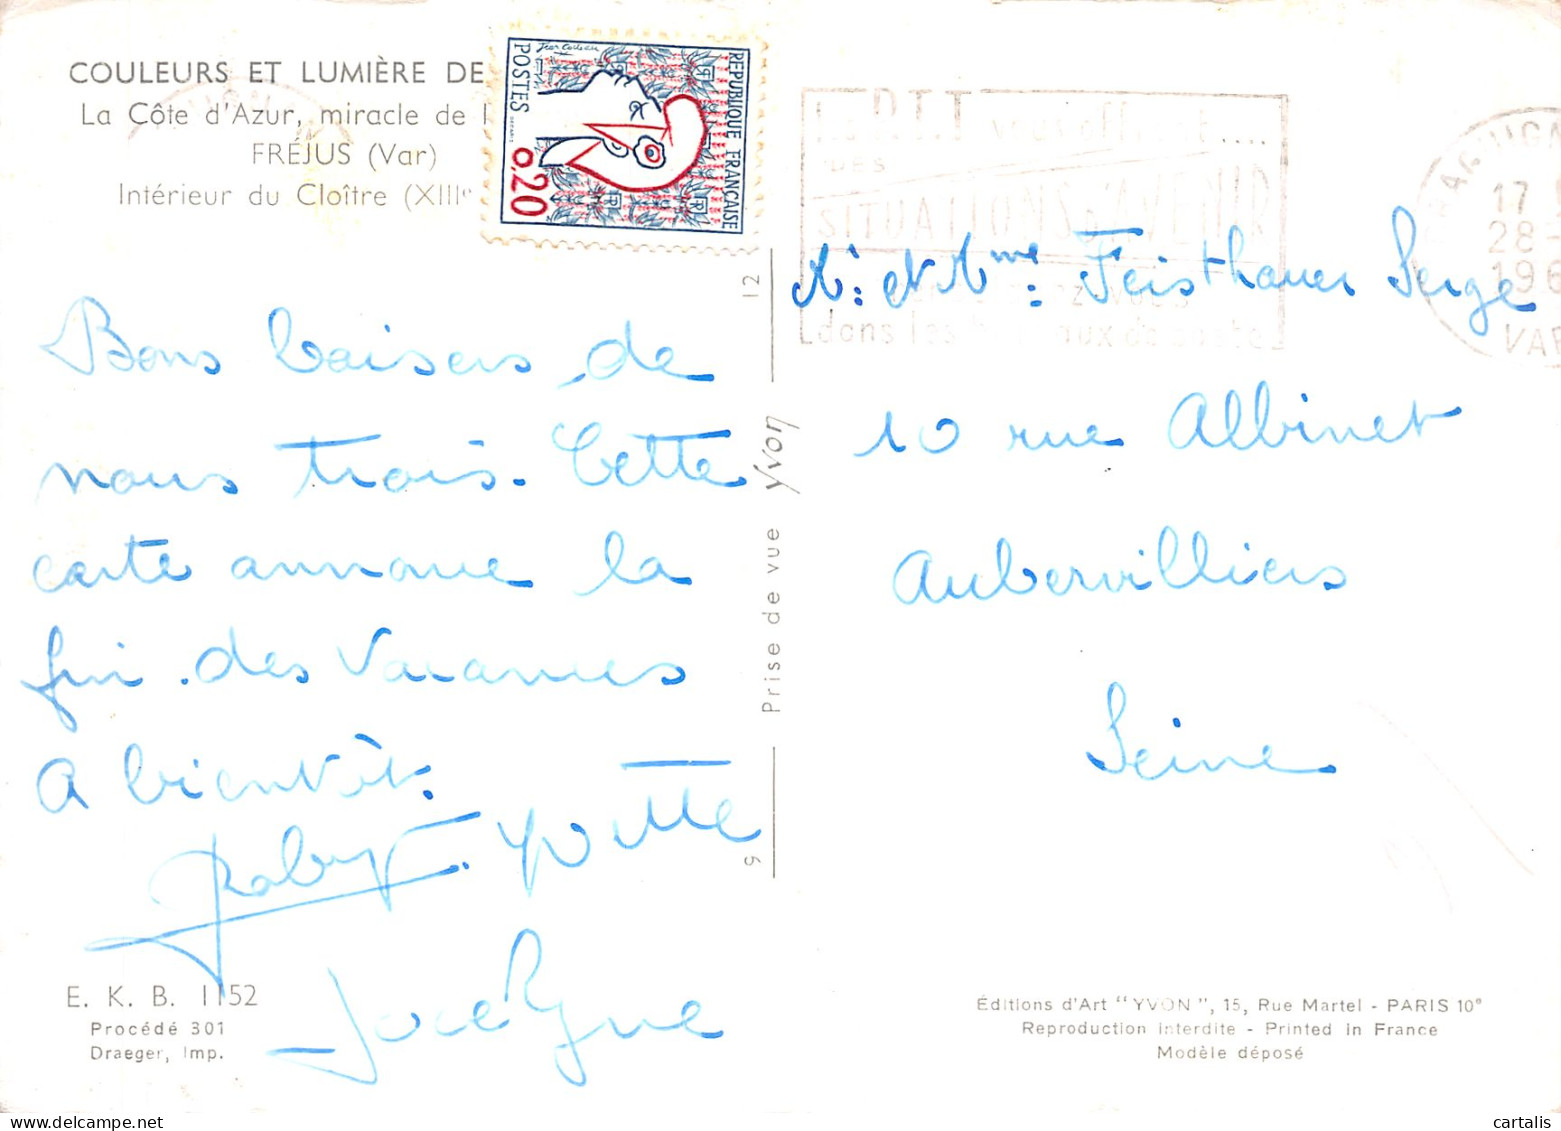 COULEURS ET LUMIÈRE DE
La Côte d'Azur, miracle de l
FRÉJUS (Var)
Intérieur du Cloître (XIIIe
Jean Cocteau
POSTES
REPUBLIQUE FRANÇAISE
0,20
SITUATIONS D'AVENIR
dans les bureaux de poste
17
28-
196
VAR
Bons baisers de
nous trois. Cette
carte annonce la
fin des vacances
A bientôt.
Roby. Yvette
Jocelyne
12
Prise de vue Yvon
9
Mr. et Mme: Feisthauer Serge
10 rue Albinet
Aubervilliers
Seine
E. K. B. 1152
Procédé 301
Draeger, Imp.
Éditions d'Art "YVON", 15, Rue Martel - PARIS 10e
Reproduction interdite - Printed in France
Modèle déposé
cartalis